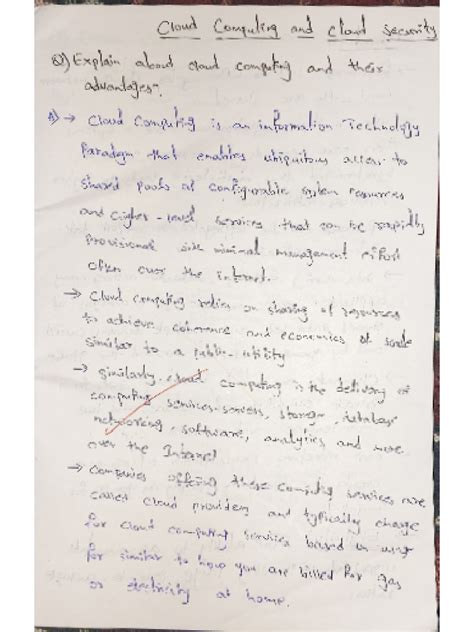 Cloud Computing and cloud security
Q) Explain about cloud computing and their
advantages.
A) → Cloud Computing is an information Technology
Paradigm that enables ubiquitous access to
shared pools of configurable system resources
and higher-level services that can be rapidly
provisional minimal management effort
often over the internet.
→ Cloud computing relies on sharing of resources
to achieve coherence and economies of scale
similar to a public-utility
→ similarly, cloud computing is the delivery of
computing services-servers, storage, database
networking, software, analytics, and more
over the Internet
→ Companies offering these computing services are
called cloud providers and typically charge
for cloud computing services based on usage
for similar to how you are billed for gas
or electricity at home.